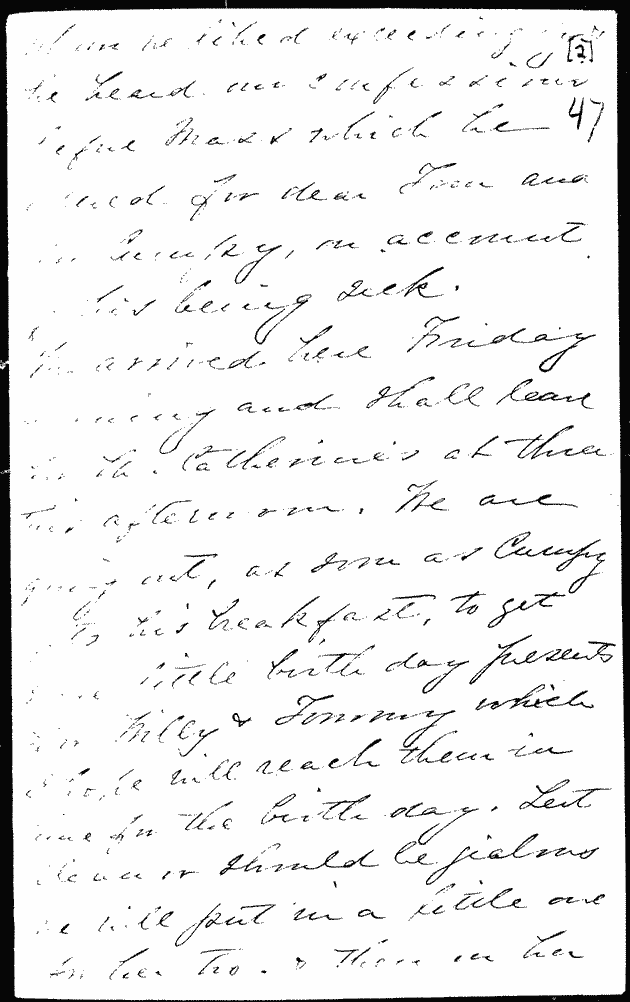 whom we liked exceedingly [2]
he heard our confessions
before Mass which he 47
offered for dear Tom and
for Cumpy, on account
his being sick.
We arrived here Friday
morning and shall leave
for St. Catherine's at three
this afternoon. We are
going out, as soon as Cumpy
gets his breakfast, to get
some little birth day presents
for Willy & Tommy which
I hope will reach them in
time for the birth day. Lest
Eleanor should be jealous
we will put in a little one
for her too. & then in her